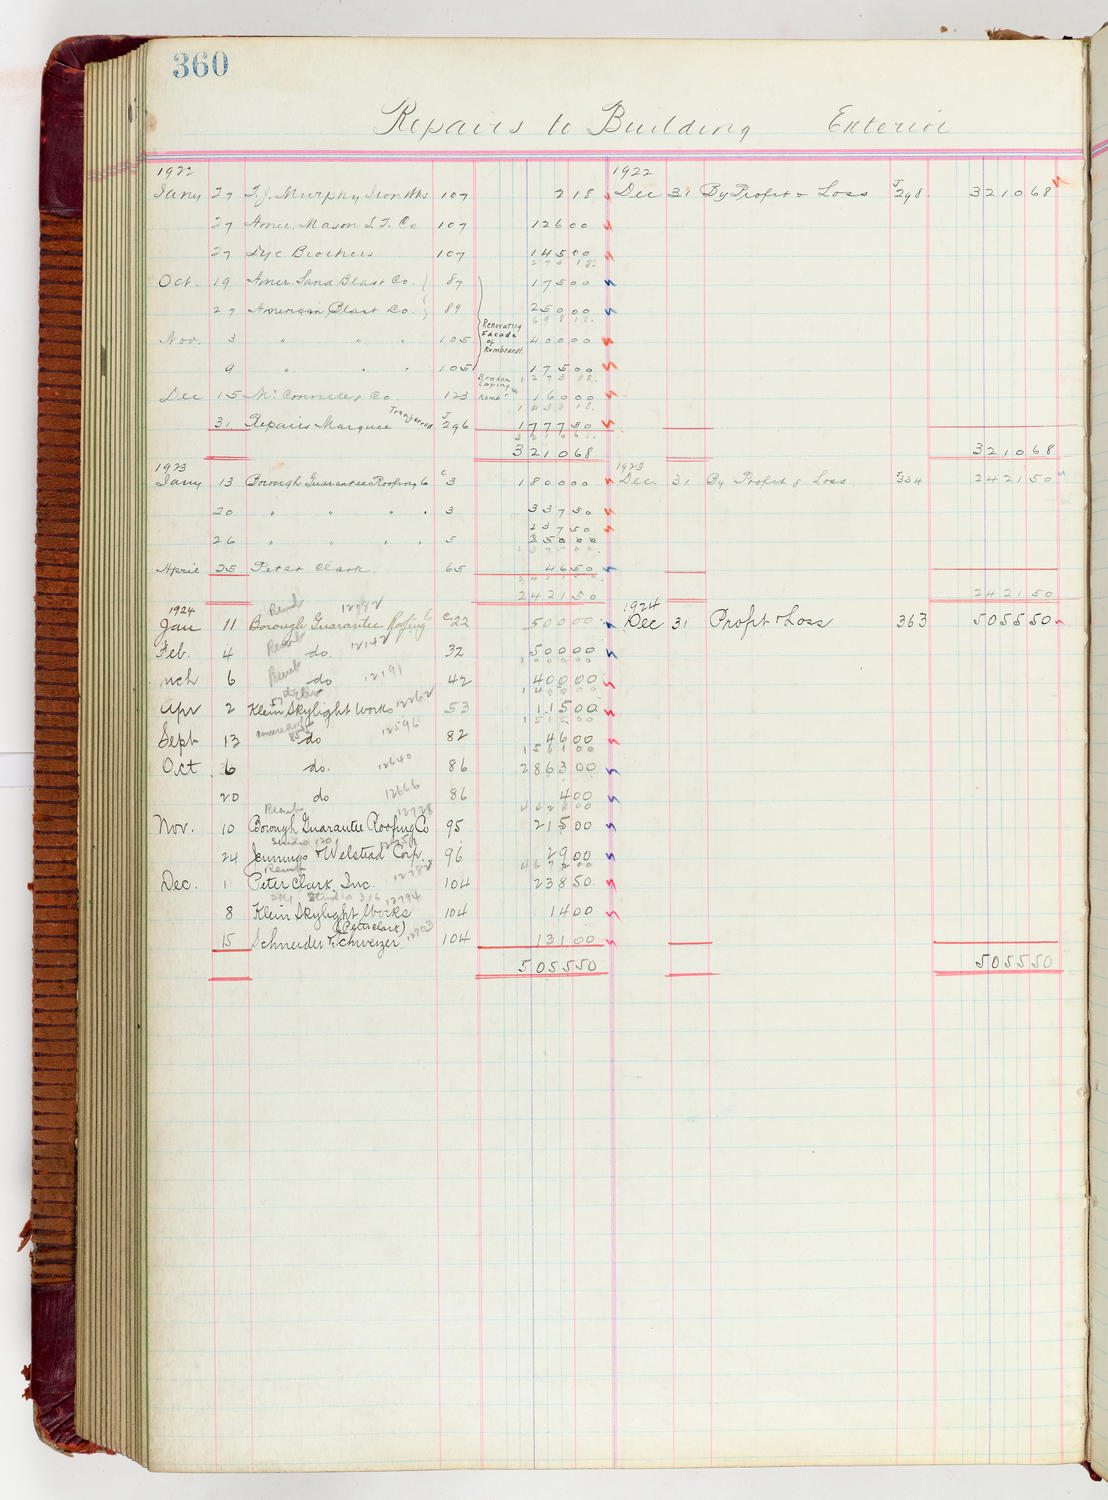 360
Repairs to Building Exterior
1922
Jany 27 T. J. Murphy Iron Wks 107 2 18
27 Amer. Mason S. T. Co 107 126 00
27 Tyc Brothers 107 145 00
273 18
Oct. 19 Amer. Sand Blast Co. 87 175 00
27 American Blast Co. 89 250 00
698 18
Renovating Facade of Rembrandt
Nov. 3 " " " 105 400 00
9 " " " 105 175 00
1273 18
Broken Coping Remb't
Dec 15 McConnell & Co. 123 160 00
1433 18
31 Repairs Marquee Transferred J 296 1777 50
3210 68
3210 68
1922
Dec 31 By Profit & Loss J 298 3210 68
3210 68
1923
Jany 13 Borough Guarantee Roofing Co C 3 1800 00
20 " " " " 3 337 50
237 50
26 " " " " 5
2375 00
April 25 Peter Clark 65 46 50
2421 50
2421 50
1923
Dec. 31 By Profit & Loss J 334 2421 50
2421 50
1924
Remb 12082
Jan 11 Borough Guarantee Roofing Co C 22 500 00
Remb 12142
Feb. 4 do. 32 500 00
1000 00
Remb 12191
Mch 6 do 42 400 00
1400 00
12262
Apr 2 Klein Skylight Works 53 115 00
1515 00
12596
Sept 13 do 82 46 00
1561 00
12640
Oct 6 do. 86 2863 00
12666
20 do 86 4 00
4428 00
Remb 12728
Nov. 10 Borough Guarantee Roofing Co 95 215 00
Studio 120
24 Jennings & Welstead Corp. 96 29 00
4672 00
Remb 12782
Dec. 1 Peter Clark Inc. 104 238 50
Sky Studio 316 12794
8 Klein Skylight Works 104 14 00
(Peter Clark) 12803
15 Schneider & Schweizer 104 131 00
5055 50
1924
Dec 31 Profit & Loss 363 5055 50
5055 50